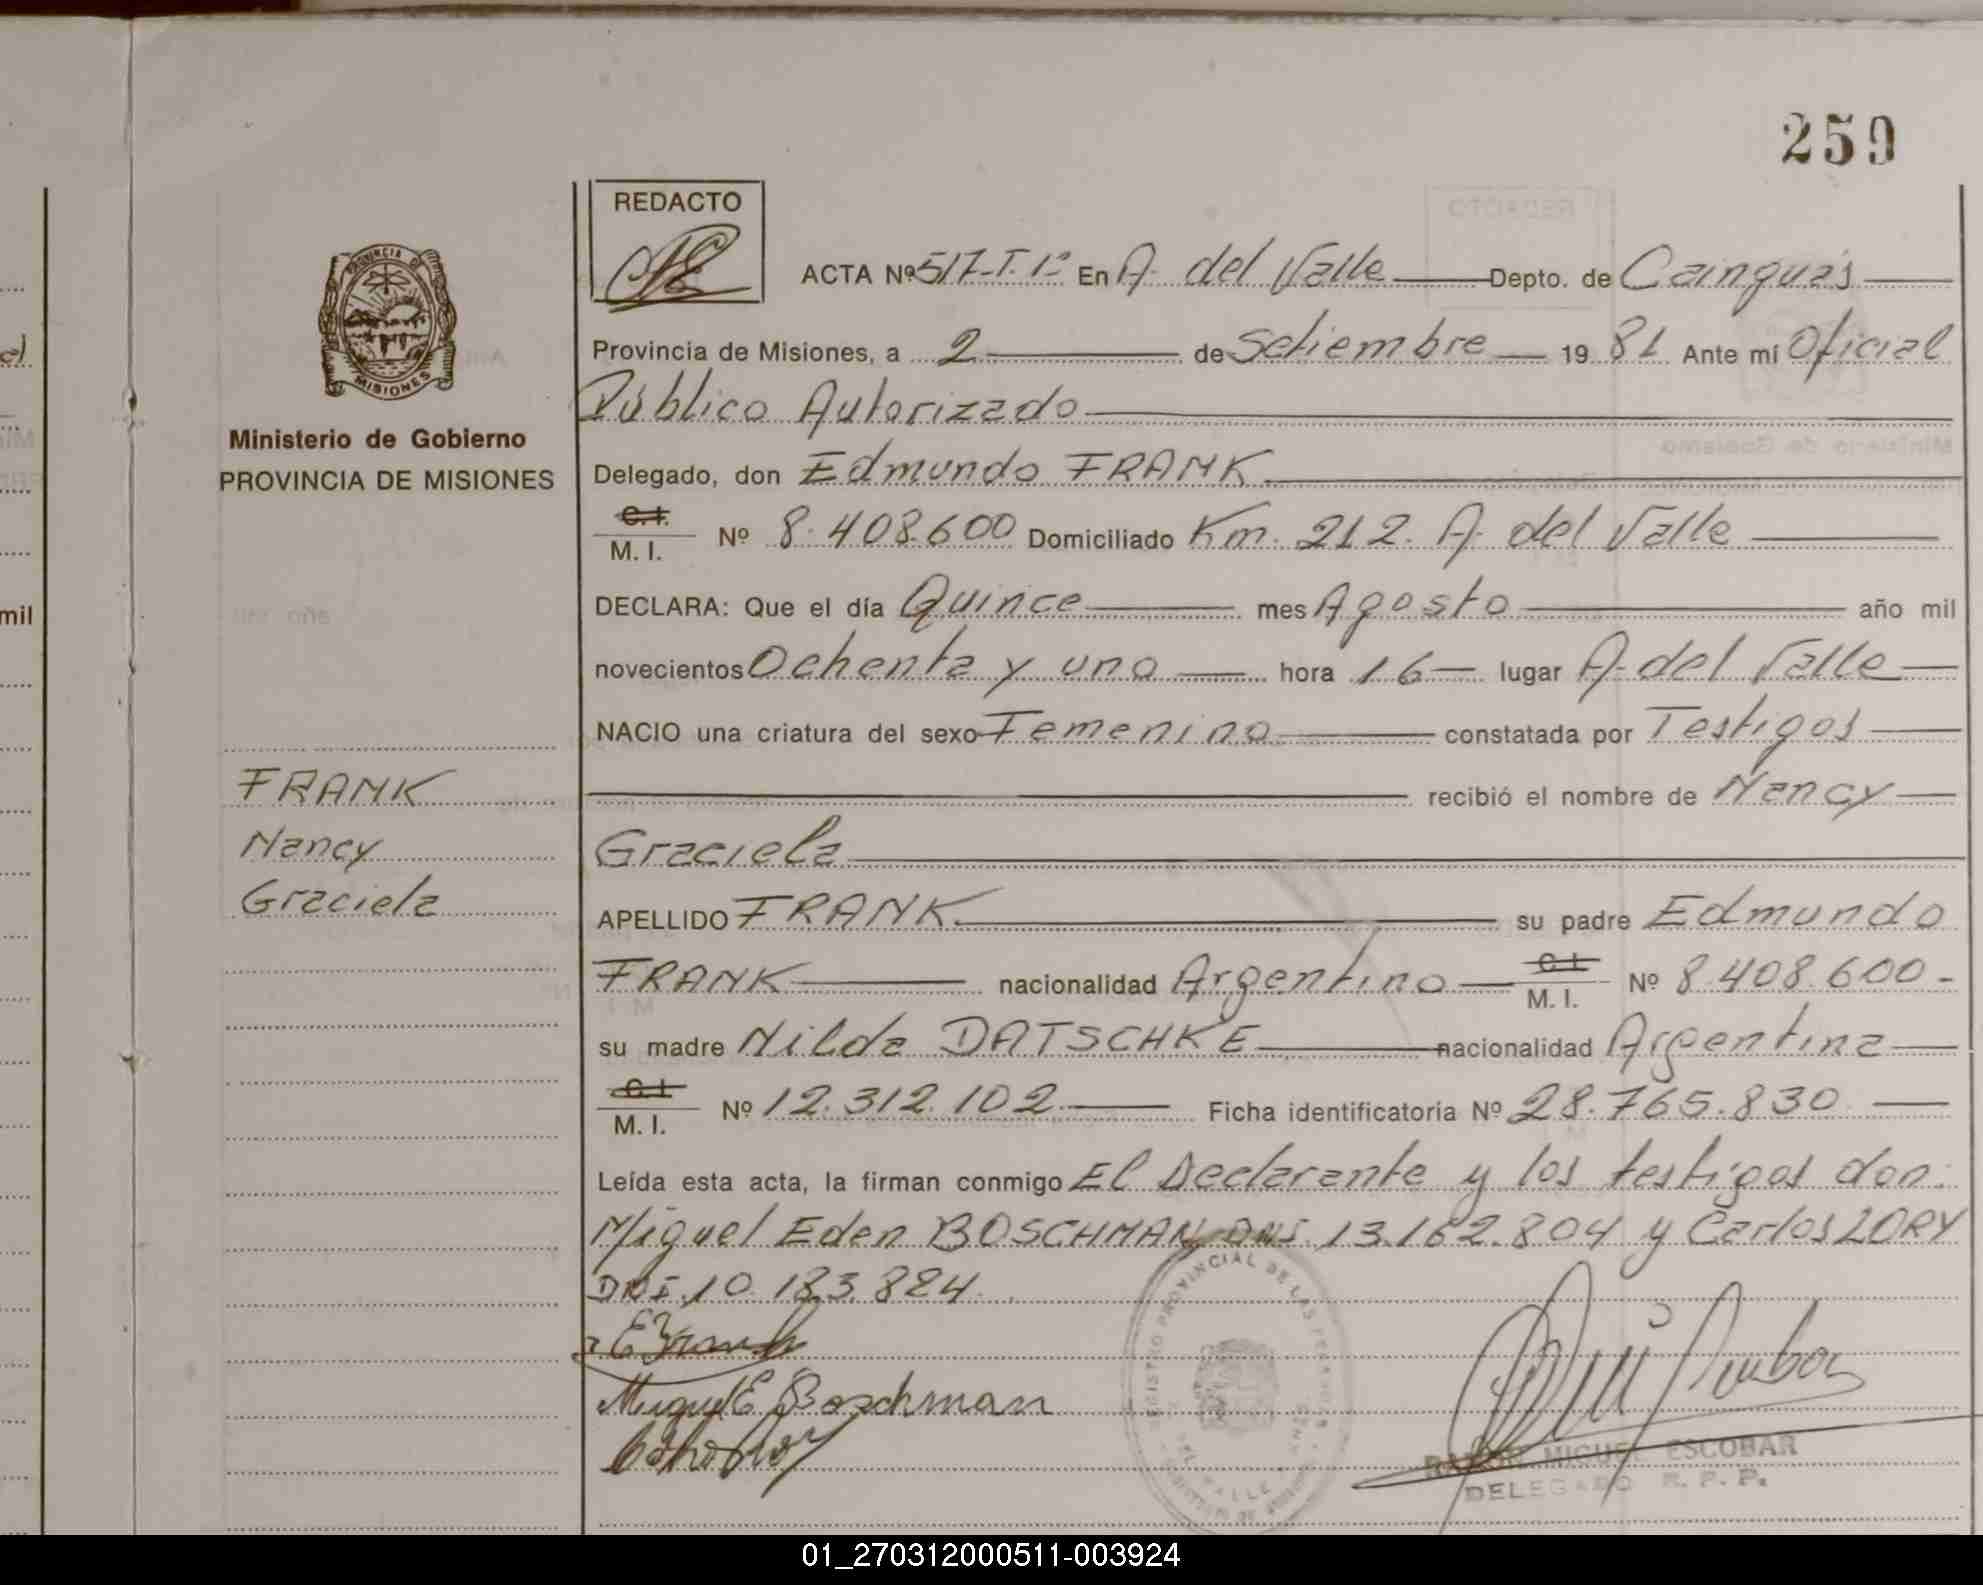 259
REDACTO
ACTA Nº 517-T.1º En A. del Valle Depto. de Cainguás
Provincia de Misiones, a 2 de Setiembre 19 81 Ante mí Oficial
Público Autorizado
Ministerio de Gobierno
PROVINCIA DE MISIONES
Delegado, don Edmundo FRANK
C.I.
M. I. Nº 8.408.600 Domiciliado Km. 212. A. del Valle
DECLARA: Que el día Quince mes Agosto año mil
novecientos Ochenta y uno hora 16 lugar A. del Valle
NACIO una criatura del sexo Femenino constatada por Testigos
recibió el nombre de Nancy
Graciela
FRANK
Nancy
Graciela
APELLIDO FRANK su padre Edmundo
FRANK nacionalidad Argentino C.I. M. I. Nº 8.408.600
su madre Nilda DATSCHKE nacionalidad Argentina
C.I.
M. I. Nº 12.312.102 Ficha identificatoria Nº 28.765.830
Leída esta acta, la firman conmigo El Declarante y los testigos don:
Miguel Eden BOSCHMAN DNI. 13.162.804 y Carlos LORY
DNI. 10.183.824.
E Frank
Miguel E Boschman
RAMON MIGUEL ESCOBAR
DELEGADO R. P. P.
REGISTRO PROVINCIAL DE LAS PERSONAS
PROVINCIA DE
MISIONES
mil
01_270312000511-003924